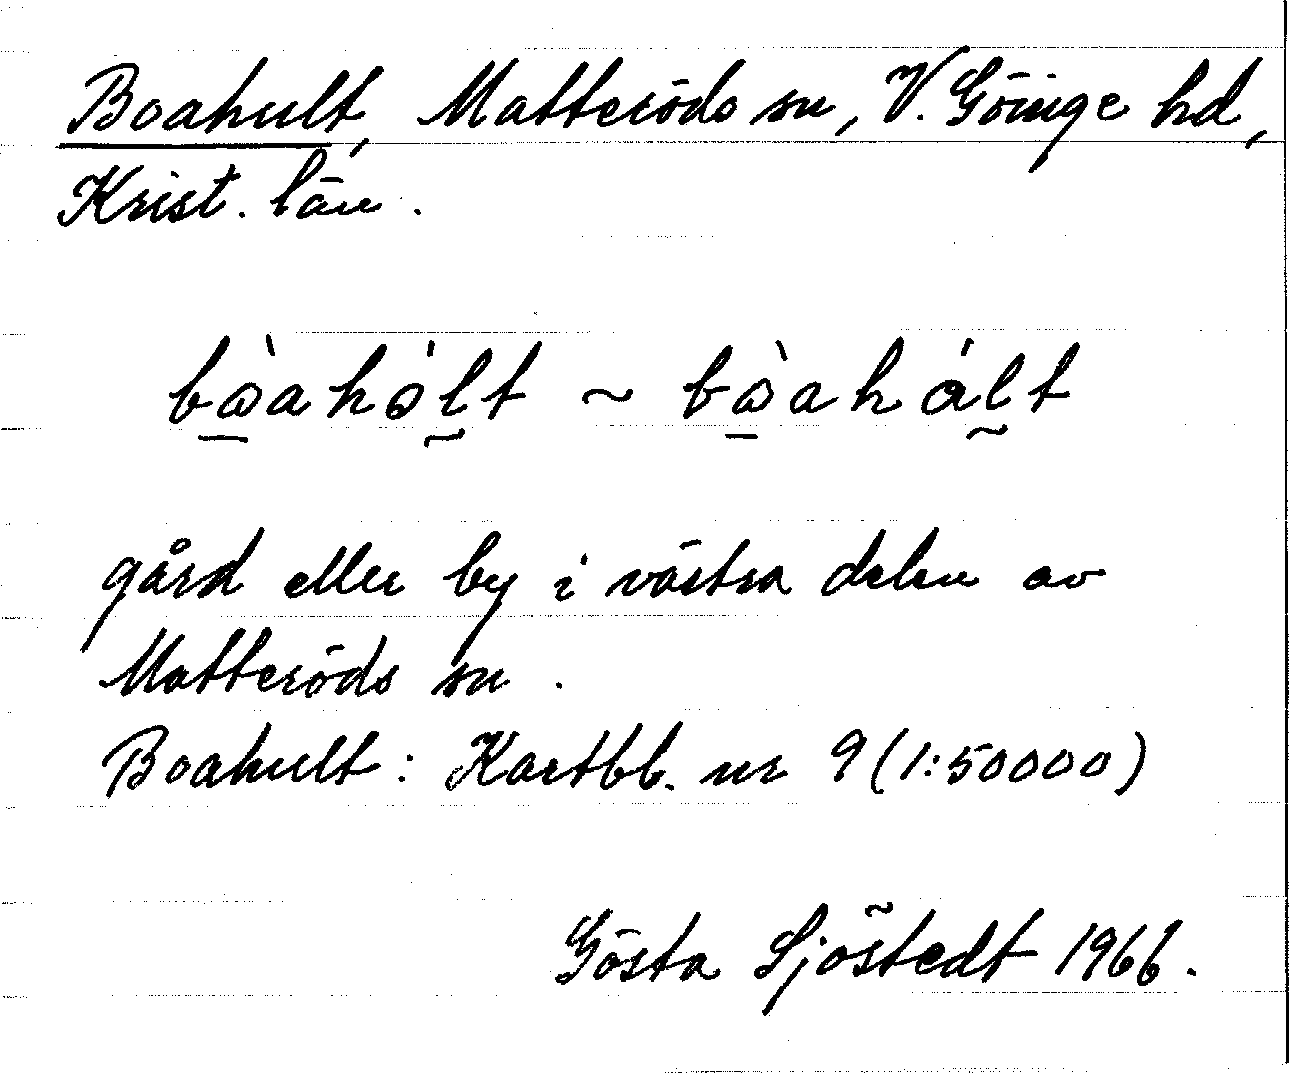 Boahult, Matteröds sn, V. Göinge hd,
Krist. län.
bὼ̠ahɔ́l̰t ~ bὼ̠ahál̰t
gård eller by i västra delen av
Matteröds sn.
Boahult: Kartbl. nr 9 (1:50000)
Gösta Sjöstedt 1966.